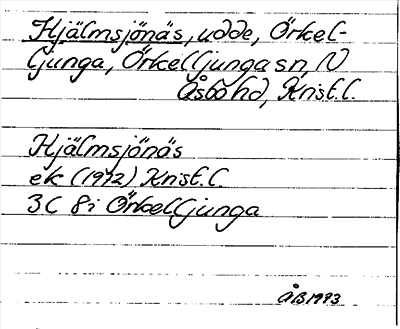 Hjälmsjönäs, udde, Örkel-
ljunga, Örkelljunga sn, N
Åsbo hd, Krist.l.
Hjälmsjönäs
ek (1972) Krist.l.
3C 8i Örkelljunga
ÅB 1993